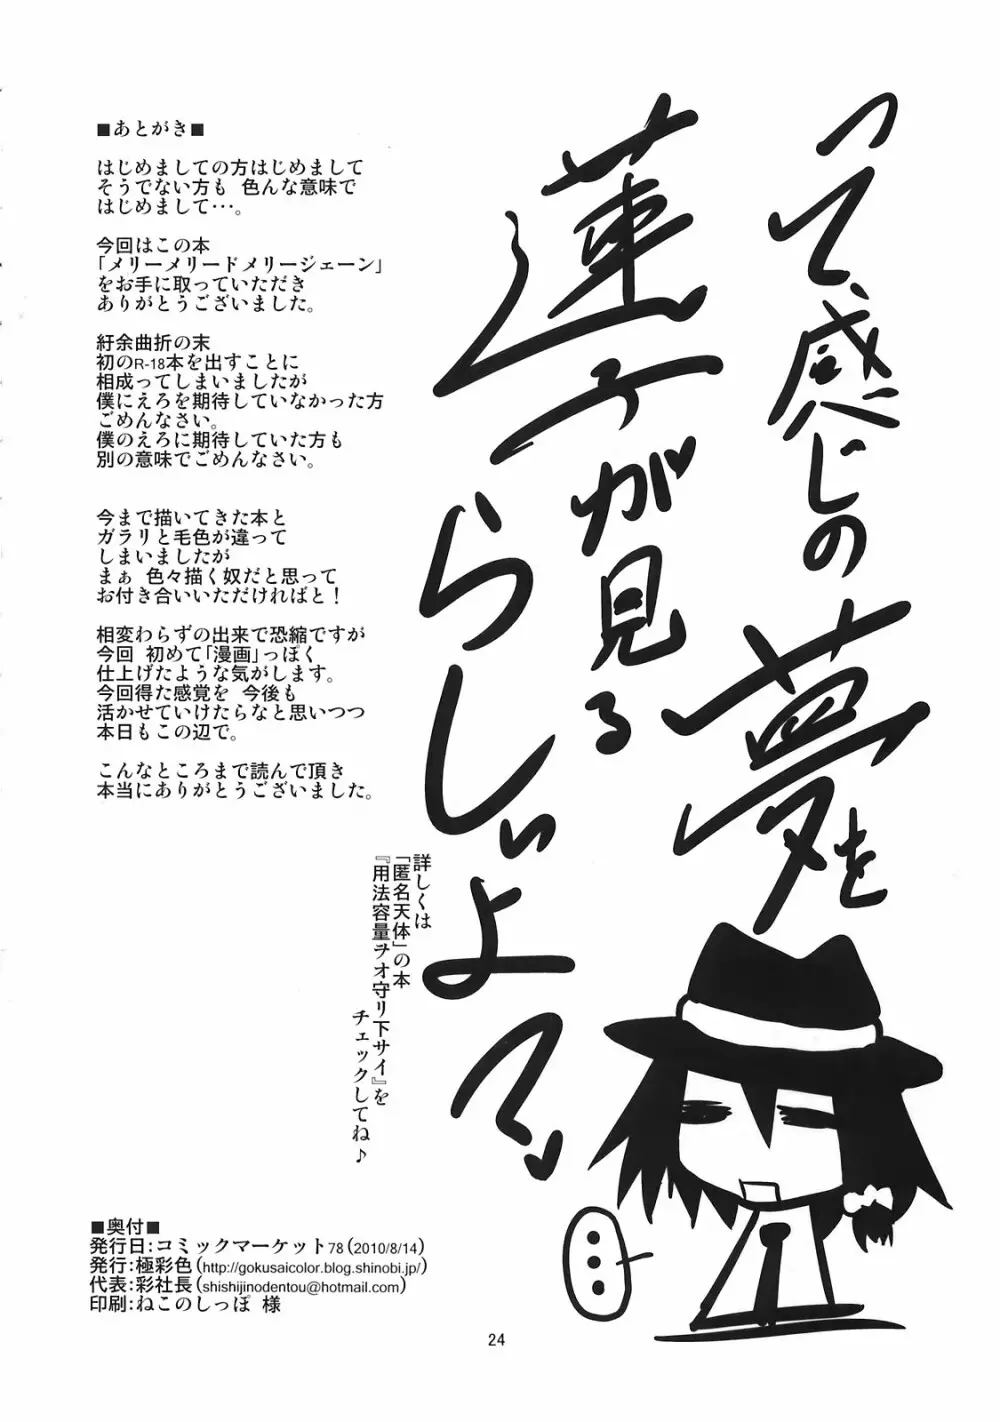 って、感じの夢を
蓮子が見る
らしぃよって。
■あとがき■
はじめましての方はじめまして
そうでない方も 色んな意味で
はじめまして…。
今回はこの本
「メリーメリードメリージェーン」
をお手に取っていただき
ありがとうございました。
紆余曲折の末
初のR-18本を出すことに
相成ってしまいましたが
僕にえろを期待していなかった方
ごめんなさい。
僕のえろに期待していた方も
別の意味でごめんなさい。
今まで描いてきた本と
ガラリと毛色が違って
しまいましたが
まぁ 色々描く奴だと思って
お付き合いいただければと！
相変わらずの出来で恐縮ですが
今回 初めて「漫画」っぽく
仕上げたような気がします。
今回得た感覚を 今後も
活かせていけたらなと思いつつ
本日もこの辺で。
こんなところまで読んで頂き
本当にありがとうございました。
詳しくは
「匿名天体」の本
『用法容量ヲオ守リ下サイ』を
チェックしてね♪
…
■奥付■
発行日：コミックマーケット78（2010/8/14）
発行：極彩色（http://gokusaicolor.blog.shinobi.jp/）
代表：彩社長（shishijinodentou@hotmail.com）
印刷：ねこのしっぽ 様
24